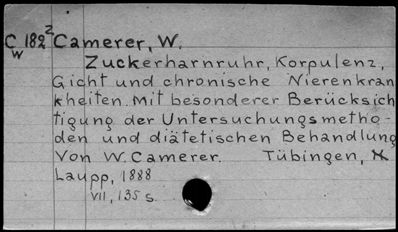 C 182² Camerer, W.
W
Zuckerharnruhr, Korpulenz,
Gicht und chronische Nierenkran
kheiten. Mit besonderer Berücksich
tigung der Untersuchungsmetho-
den und diätetischen Behandlung
Von W. Camerer. Tübingen,
Laupp, 1888
VII, 135 s.